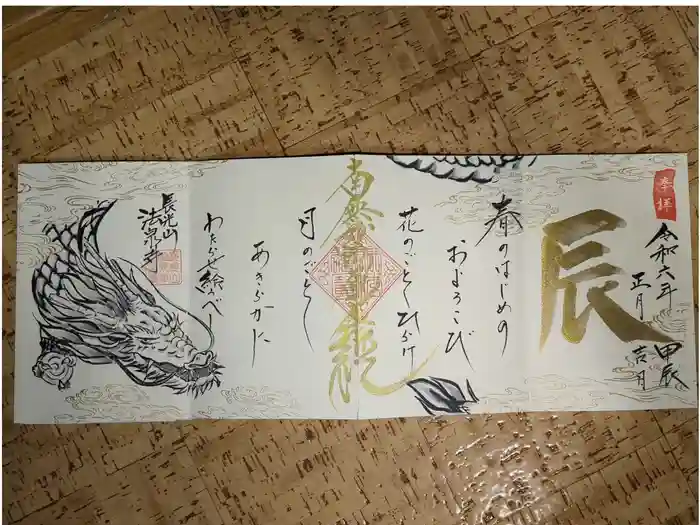 奉拝
令和六年 甲辰
正月 吉日
辰
春のはじめの
およろこび
花のごとくひらけ
南無 龍
月のごとく
あきらかに
わたらせ給べし
法泉寺